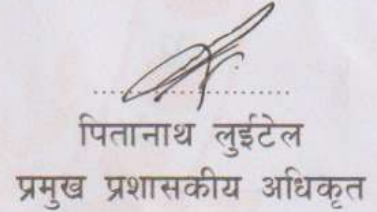 पितानाथ लुईटेल
प्रमुख प्रशासकीय अधिकृत